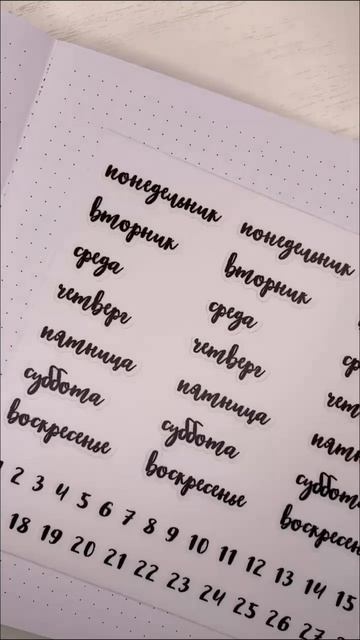 понедельник понедельник
вторник вторник
среда среда
четверг четверг
пятница пятница
суббота суббота
воскресенье воскресенье
2 3 4 5 6 7 8 9 10 11 12 13 14 15
18 19 20 21 22 23 24 25 26 27